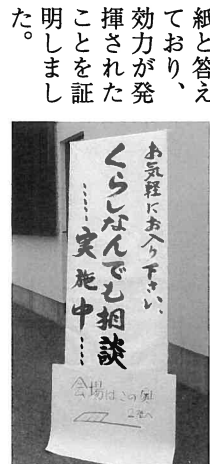 紙と答え
ており、
効力が発
揮された
ことを証
明しまし
た。
お気軽にお入り下さい、
くらしなんでも相談
……実施中……
会場はこの
2階へ